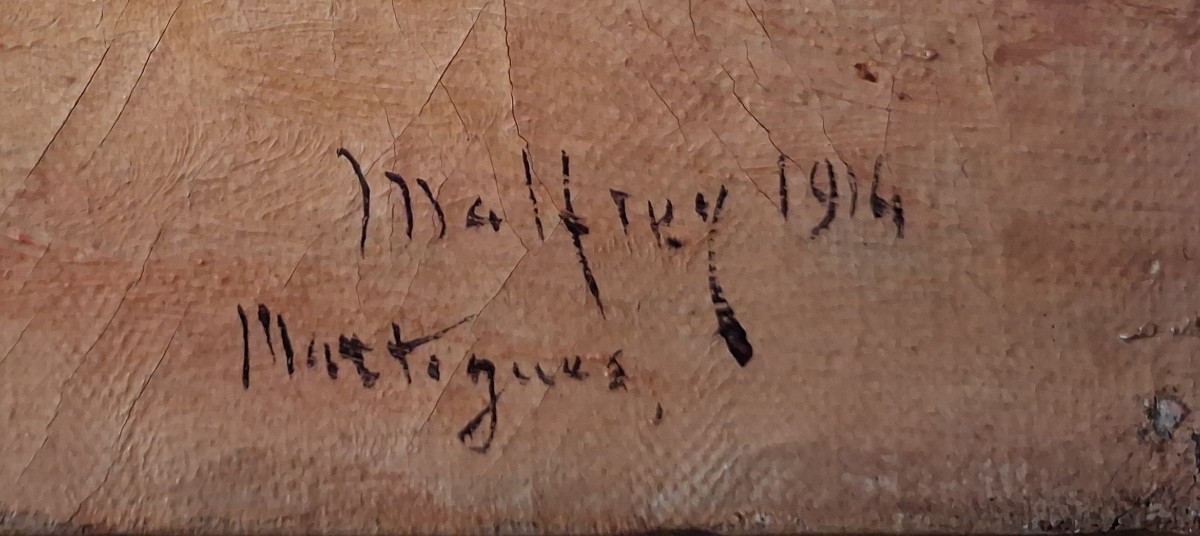 Malfroy 1914
Martigues